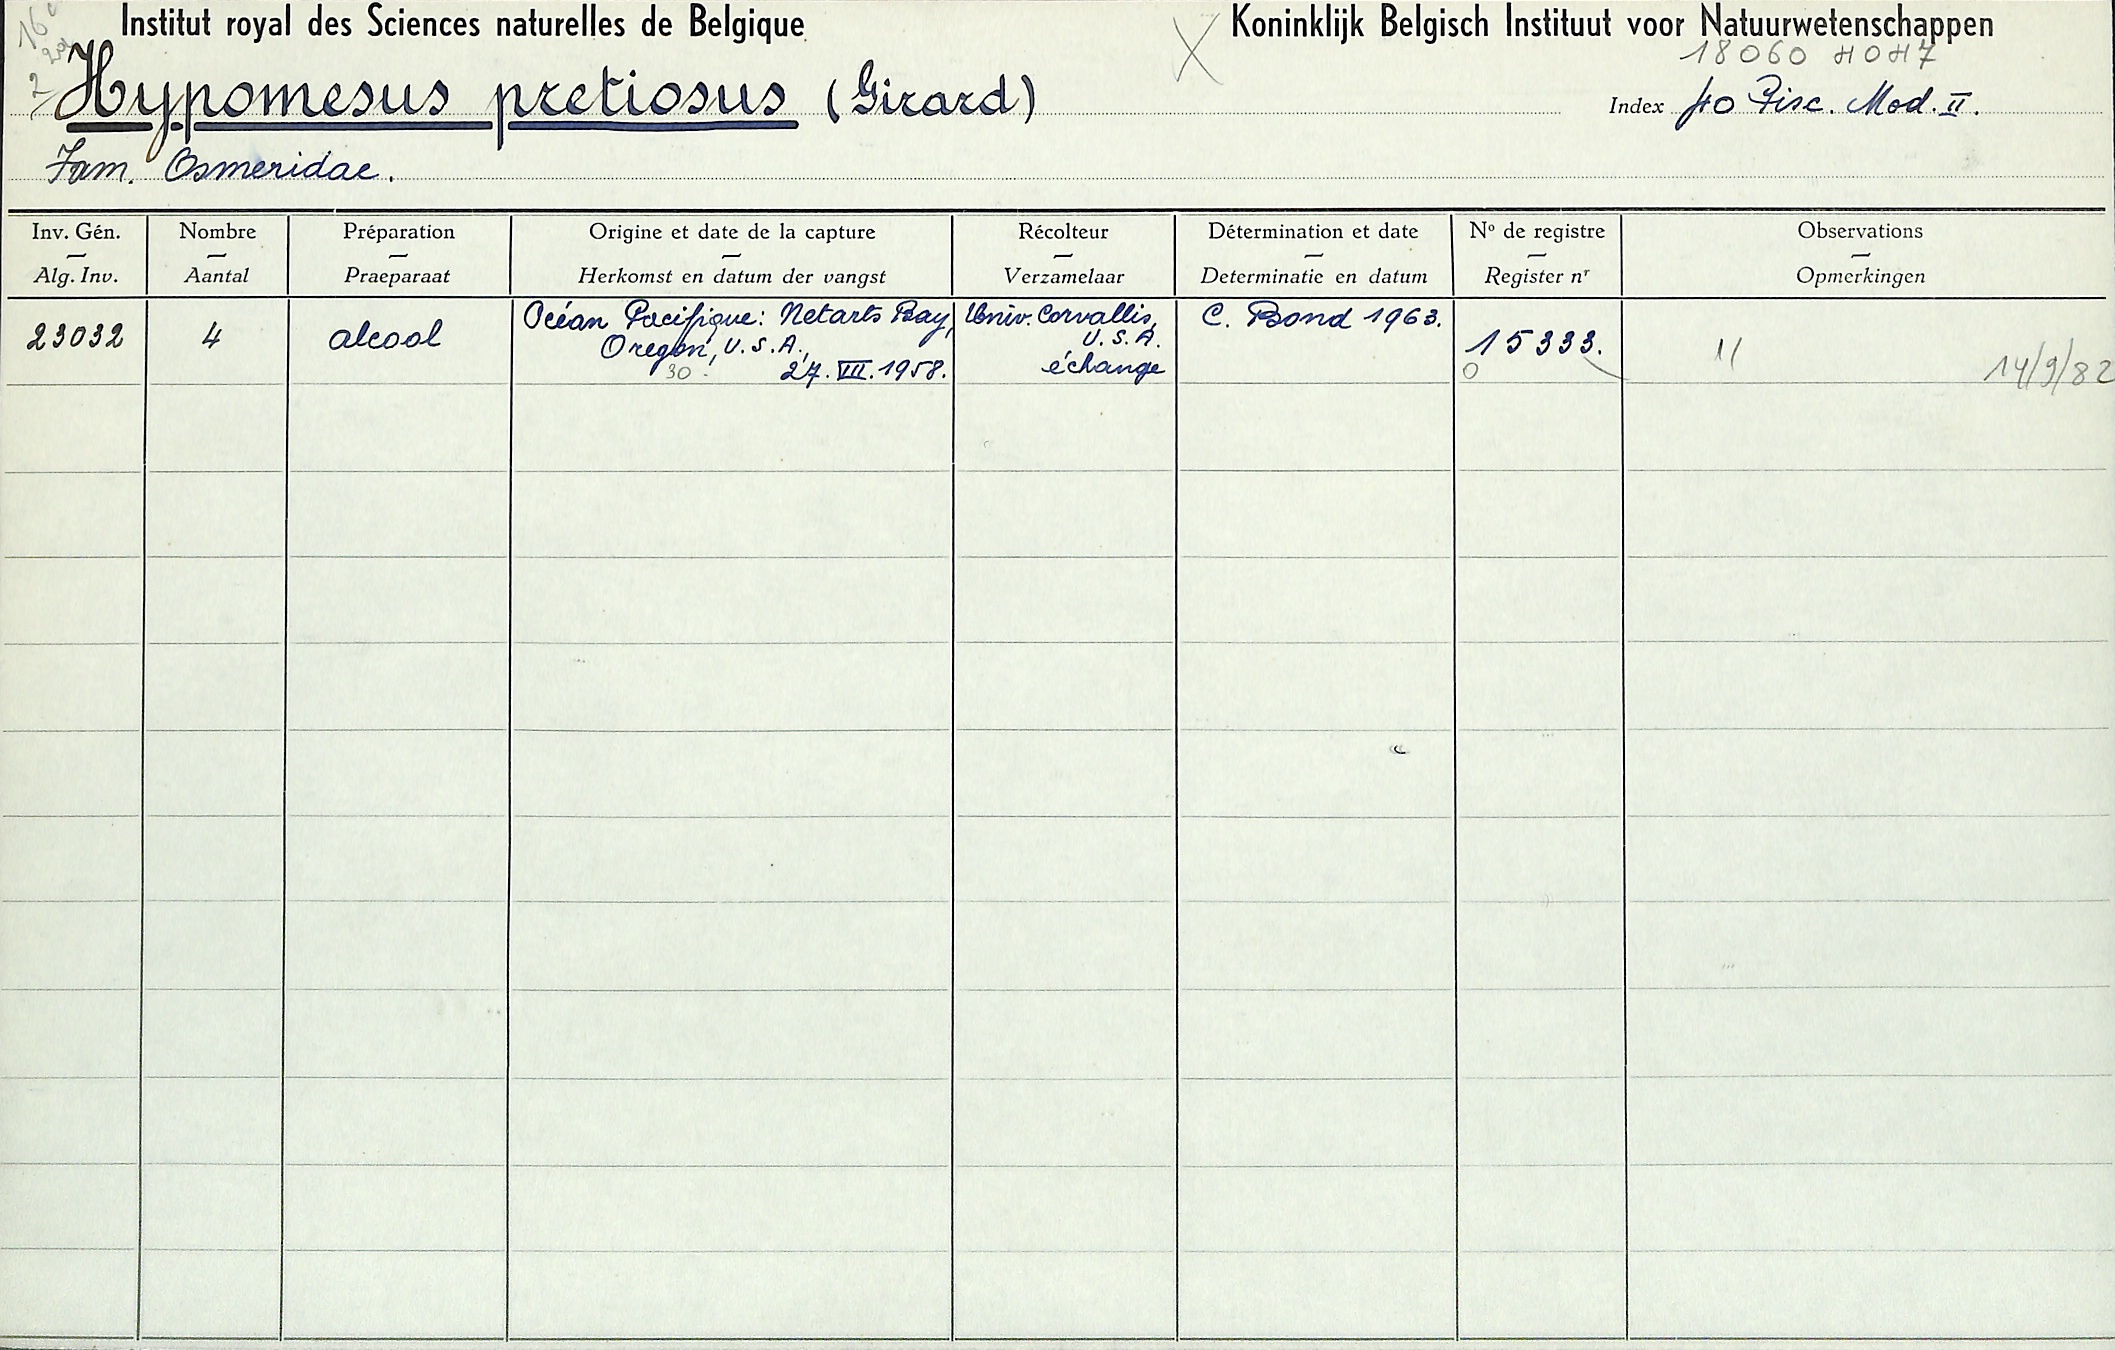 Institut royal des Sciences naturelles de Belgique
Koninklijk Belgisch Instituut voor Natuurwetenschappen
18060 HOH7
Hypomesus pretiosus (Girard)
Index 40 Pisc. Mod. II.
Fam. Osmeridae.
Inv. Gén. Nombre Préparation Origine et date de la capture Récolteur Détermination et date Nº de registre Observations
Alg. Inv. Aantal Praeparaat Herkomst en datum der vangst Verzamelaar Determinatie en datum Register nʳ Opmerkingen
23032 4 alcool
Océan Pacifique: Netarts Bay,
Oregon, U.S.A.,
30 27.VII.1958.
Univ. Corvallis,
U.S.A.
échange
C. Bond 1963.
15333.
0
14/9/82